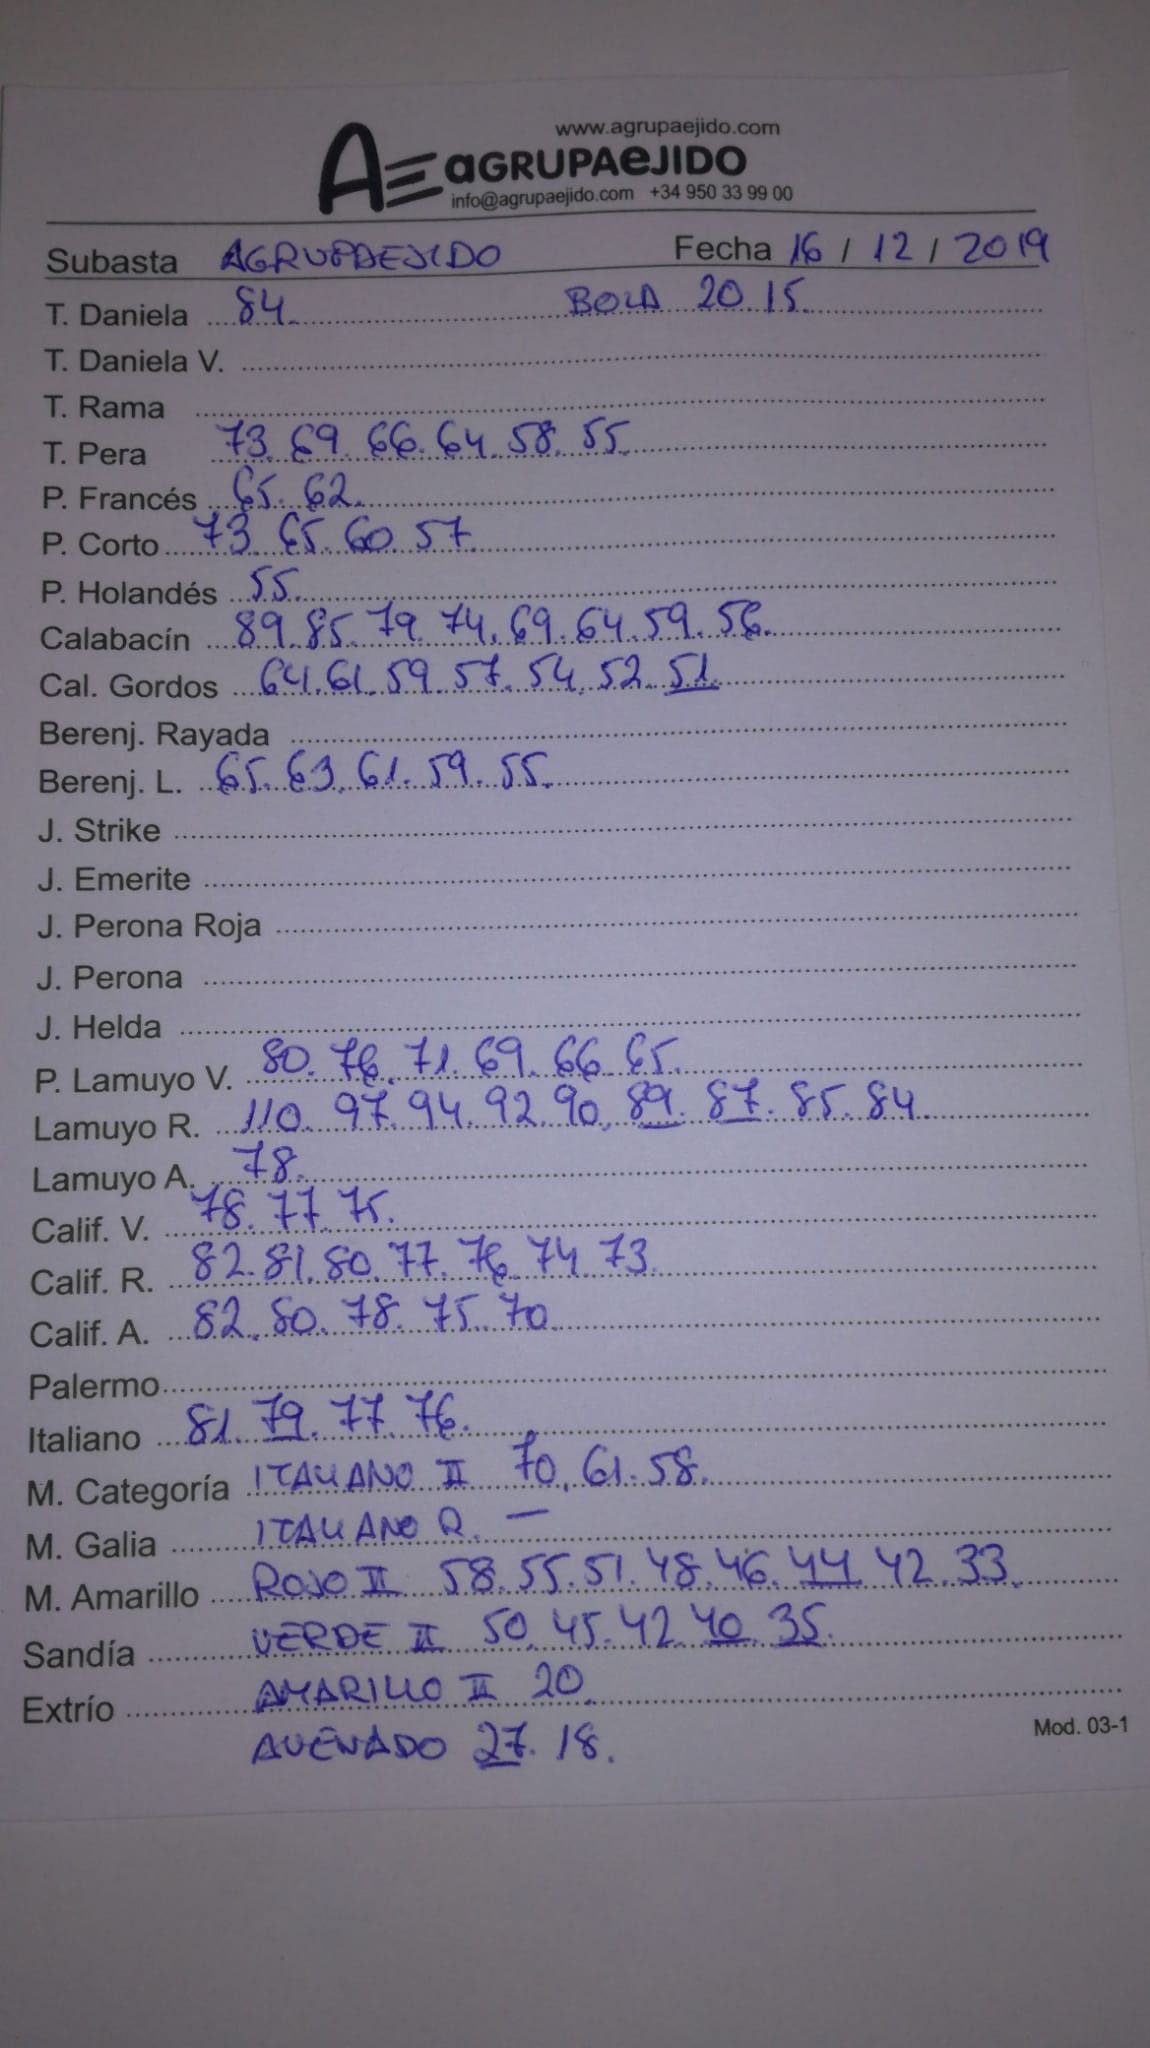 www.agrupaejido.com
AE aGRUPAeJIDO
info@agrupaejido.com +34 950 33 99 00
Subasta AGRUPAEJIDO Fecha 16 / 12 / 2019
T. Daniela 84. BOLA 20.15.
T. Daniela V.
T. Rama
T. Pera 73. 69. 66. 64. 58. 55.
P. Francés 65. 62.
P. Corto 73. 65. 60. 57.
P. Holandés 55.
Calabacín 89. 85. 79. 74. 69. 64. 59. 56.
Cal. Gordos 64. 61. 59. 57. 54. 52. 51.
Berenj. Rayada
Berenj. L. 65. 63. 61. 59. 55.
J. Strike
J. Emerite
J. Perona Roja
J. Perona
J. Helda
P. Lamuyo V. 80. 76. 71. 69. 66. 65.
Lamuyo R. 110. 97. 94. 92. 90. 89. 87. 85. 84.
Lamuyo A. 78.
Calif. V. 78. 77. 75.
Calif. R. 82. 81. 80. 77. 76. 74. 73.
Calif. A. 82. 80. 78. 75. 70.
Palermo
Italiano 81. 79. 77. 76.
M. Categoría ITALIANO II 70. 61. 58.
M. Galia ITALIANO R. —
M. Amarillo ROJO II 58. 55. 51. 48. 46. 44. 42. 33.
Sandía VERDE II 50. 45. 42. 40. 35.
Extrío AMARILLO II 20.
AVENADO 27. 18.
Mod. 03-1